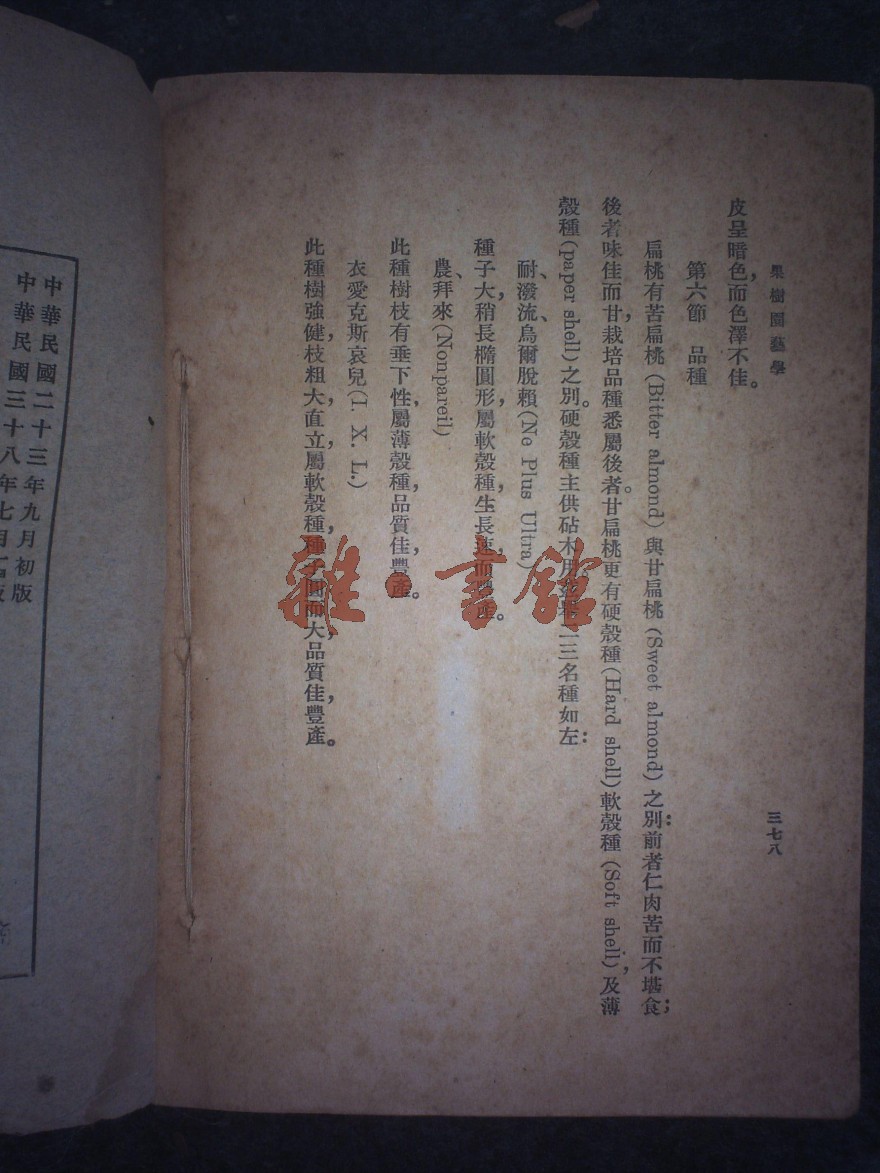 果樹園藝學
三七八
皮呈暗色，而色澤不佳。
第六節 品種
扁桃有苦扁桃 (Bitter almond) 與甘扁桃 (Sweet almond) 之別：前者仁肉苦而不堪食；
後者味佳而甘，栽培品種悉屬後者。甘扁桃更有硬殼種 (Hard shell)，軟殼種 (Soft shell)，及薄
殼種 (paper shell) 之別。硬殼種主供砧木用，二三名種如左：
耐潑流、烏爾脫賴 (Ne Plus Ultra)
種子大，稍長橢圓形，屬軟殼種，生長速而豐產。
農、拜來 (Nonpareil)
此種樹枝有垂下性，屬薄殼種，品質佳，豐產。
衣愛克斯哀兒 (I. X. L.)
此種樹強健，枝粗大直立，屬軟殼種，種子圓而大，品質佳，豐產。
中華民國二十三年九月初版
中華民國三十八年七月版
雜·書館